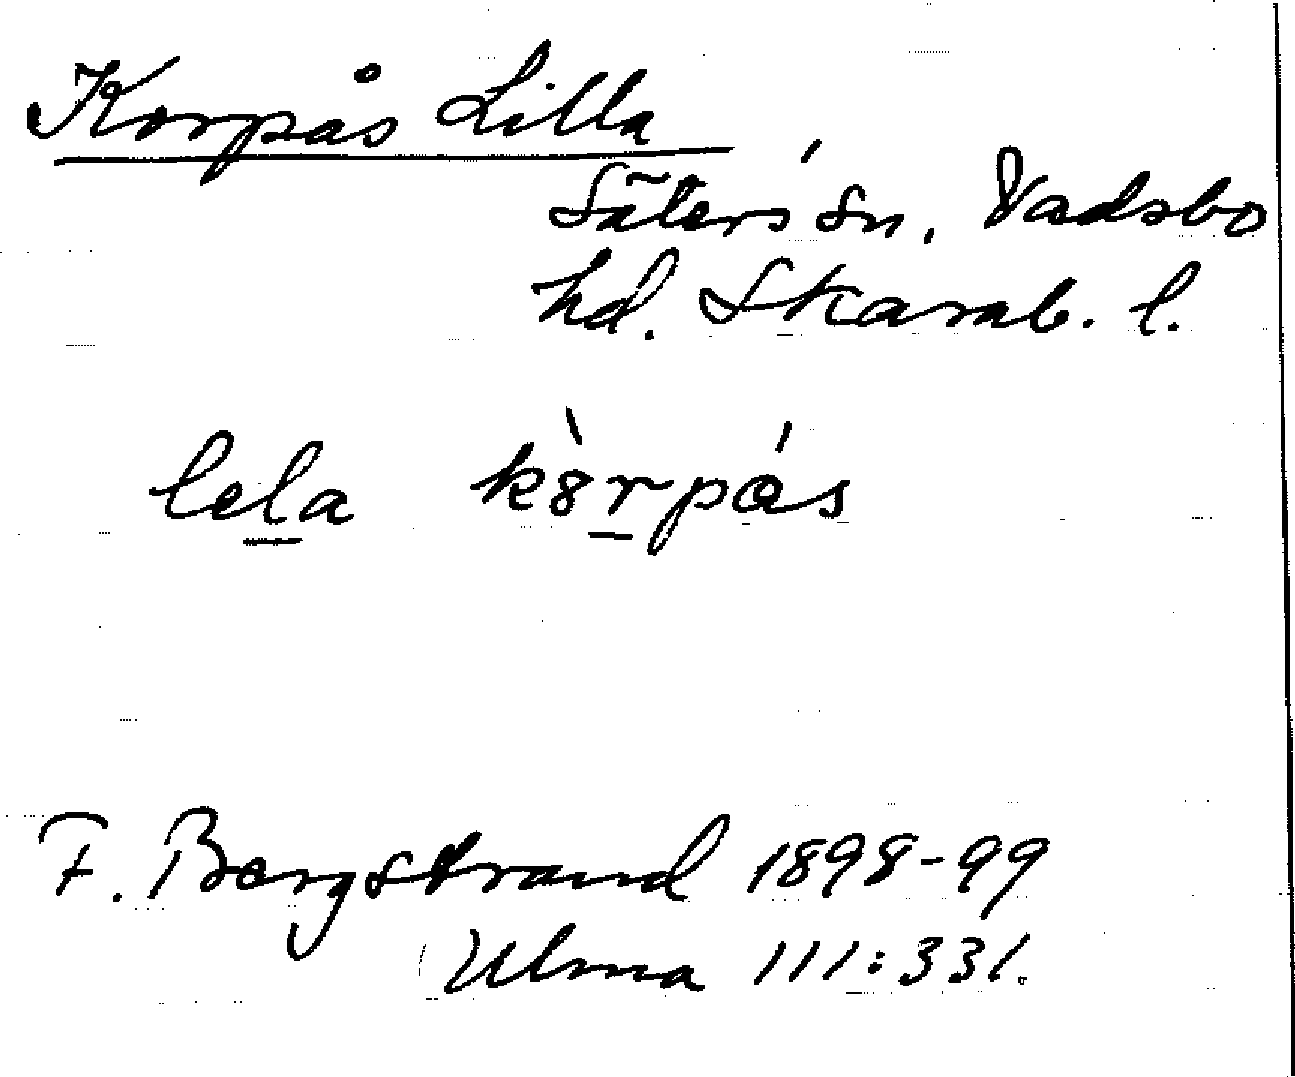 Korpås Lilla
Säters sn. Vadsbo
hd. Skarab. l.
lela kòrpás
F. Bergstrand 1898-99
Ulma 111:331.